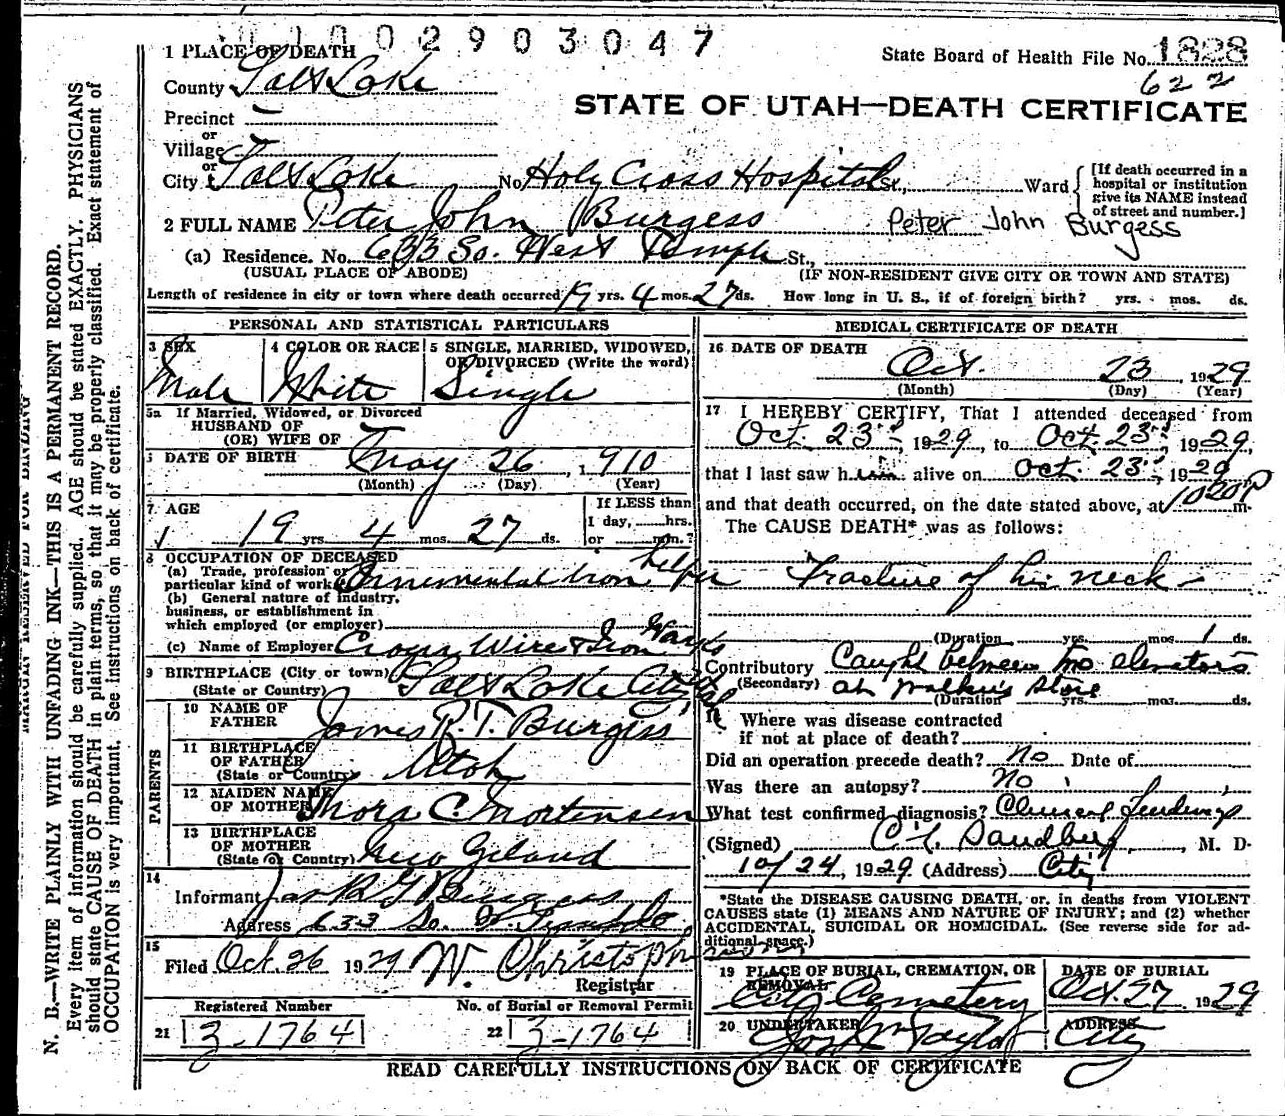 1002903047
1 PLACE OF DEATH
State Board of Health File No. 1828
County Salt Lake
622
STATE OF UTAH—DEATH CERTIFICATE
Precinct
or
Village
or
City Salt Lake No. Holy Cross Hospital St., Ward
[If death occurred in a hospital or institution give its NAME instead of street and number.]
2 FULL NAME Peter John Burgess Peter John Burgess
(a) Residence. No. 633 So. West Temple St.,
(USUAL PLACE OF ABODE) (IF NON-RESIDENT GIVE CITY OR TOWN AND STATE)
Length of residence in city or town where death occurred 19 yrs. 4 mos. 27 ds. How long in U. S., if of foreign birth? yrs. mos. ds.
PERSONAL AND STATISTICAL PARTICULARS
3 SEX
Male
4 COLOR OR RACE
White
5 SINGLE, MARRIED, WIDOWED,
OR DIVORCED (Write the word)
Single
5a If Married, Widowed, or Divorced
HUSBAND OF
(OR) WIFE OF
DATE OF BIRTH May 26, 1910
(Month) (Day) (Year)
7 AGE
19 yrs 4 mos. 27 ds.
If LESS than
1 day, hrs.
or min.?
8 OCCUPATION OF DECEASED
(a) Trade, profession or
particular kind of work Ornemental Iron helper
(b) General nature of industry,
business, or establishment in
which employed (or employer)
(c) Name of Employer Wire & Iron Works
9 BIRTHPLACE (City or town) Salt Lake City
(State or Country) Utah
PARENTS
10 NAME OF
FATHER James R. T. Burgess
11 BIRTHPLACE
OF FATHER
(State or Country) Utah
12 MAIDEN NAME
OF MOTHER Thora C. Mortensen
13 BIRTHPLACE
OF MOTHER
(State or Country) New Zeland
14
Informant Burgess
Address 633 So. W. Temple
15
Filed Oct. 26 1929 W. Christopherson
Registrar
Registered Number No. of Burial or Removal Permit
21 3-1764 22 3-1764
MEDICAL CERTIFICATE OF DEATH
16 DATE OF DEATH
Oct. 23, 1929
(Month) (Day) (Year)
17 I HEREBY CERTIFY, That I attended deceased from
Oct. 23rd, 1929, to Oct. 23rd, 1929,
that I last saw him alive on Oct. 23rd, 1929
and that death occurred, on the date stated above, at 1020 P m.
The CAUSE DEATH* was as follows:
Fracture of his neck
(Duration yrs. mos. 1 ds.
Contributory Caught between two elevators
(Secondary) at Walker's Store
(Duration yrs. mos. ds.
18 Where was disease contracted
if not at place of death?
Did an operation precede death? No Date of
Was there an autopsy? No
What test confirmed diagnosis? Clinical findings
(Signed) Sandberg, M. D.
10/24, 1929 (Address) City
*State the DISEASE CAUSING DEATH, or, in deaths from VIOLENT
CAUSES state (1) MEANS AND NATURE OF INJURY; and (2) whether
ACCIDENTAL, SUICIDAL OR HOMICIDAL. (See reverse side for ad-
ditional space.)
19 PLACE OF BURIAL, CREMATION, OR
REMOVAL
City Cemetery
DATE OF BURIAL
Oct. 27 1929
20 UNDERTAKER
Taylor
ADDRESS
City
READ CAREFULLY INSTRUCTIONS ON BACK OF CERTIFICATE
MARGIN RESERVED FOR BINDING
N. B.—WRITE PLAINLY WITH UNFADING INK—THIS IS A PERMANENT RECORD.
Every item of information should be carefully supplied. AGE should be stated EXACTLY. PHYSICIANS
should state CAUSE OF DEATH in plain terms, so that it may be properly classified. Exact statement of
OCCUPATION is very important. See instructions on back of certificate.